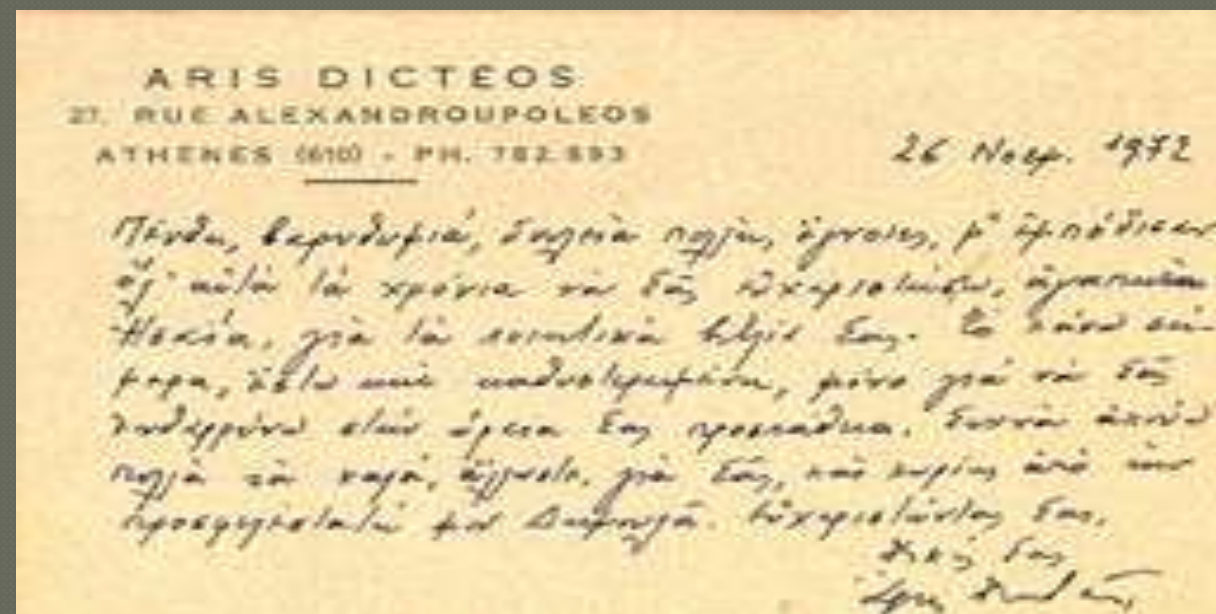 ARIS DICTÉOS
27, RUE ALEXANDROUPOLEOS
ATHENES (610) - PH. 782.593
26 Νοεμ. 1972
Πένθη, βαρυθυμιά, πολλές, ἔγνοιες, μ' ἐμπόδισαν
ὅλ' αὐτὰ τὰ χρόνια νὰ σᾶς εὐχαριστήσω, ἀγαπητὲ
γιὰ τὰ ποιητικὰ βιβλία σας. Τὸ κάνω σή-
μερα, ἔστω καὶ καθυστερημένα, μόνο γιὰ νὰ σᾶς
ἐνθαρρύνω στὴν ὡραία σας προσπάθεια. ἀκούω
πολλὰ καὶ καλά, ἄλλωστε, γιὰ σᾶς, καὶ κυρίως ἀπὸ τὸν
προσφιλέστατό μου Εὐχαριστώντας σας,
δικός σας
Ἄρης